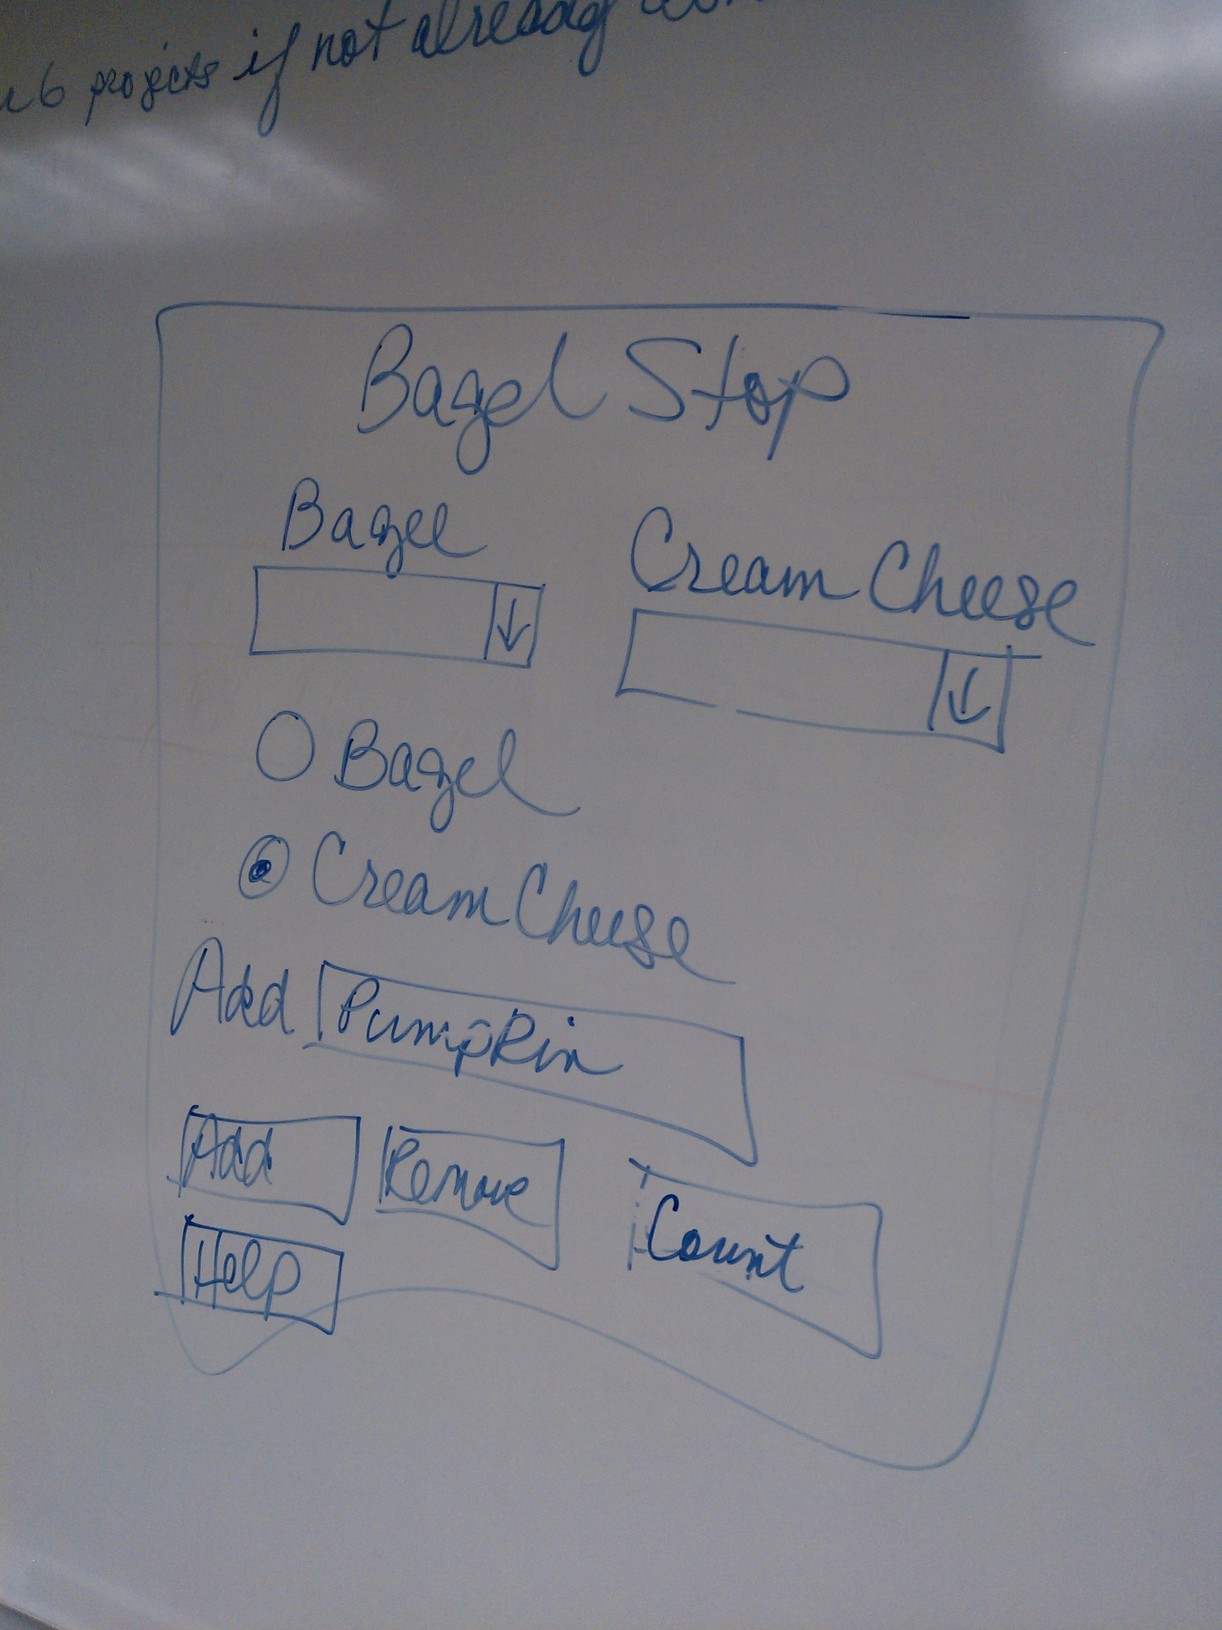 6 projects if not already
Bagel Stop
Bagel
Cream Cheese
Bagel
Cream Cheese
Add Pumpkin
Add Remove Count
Help